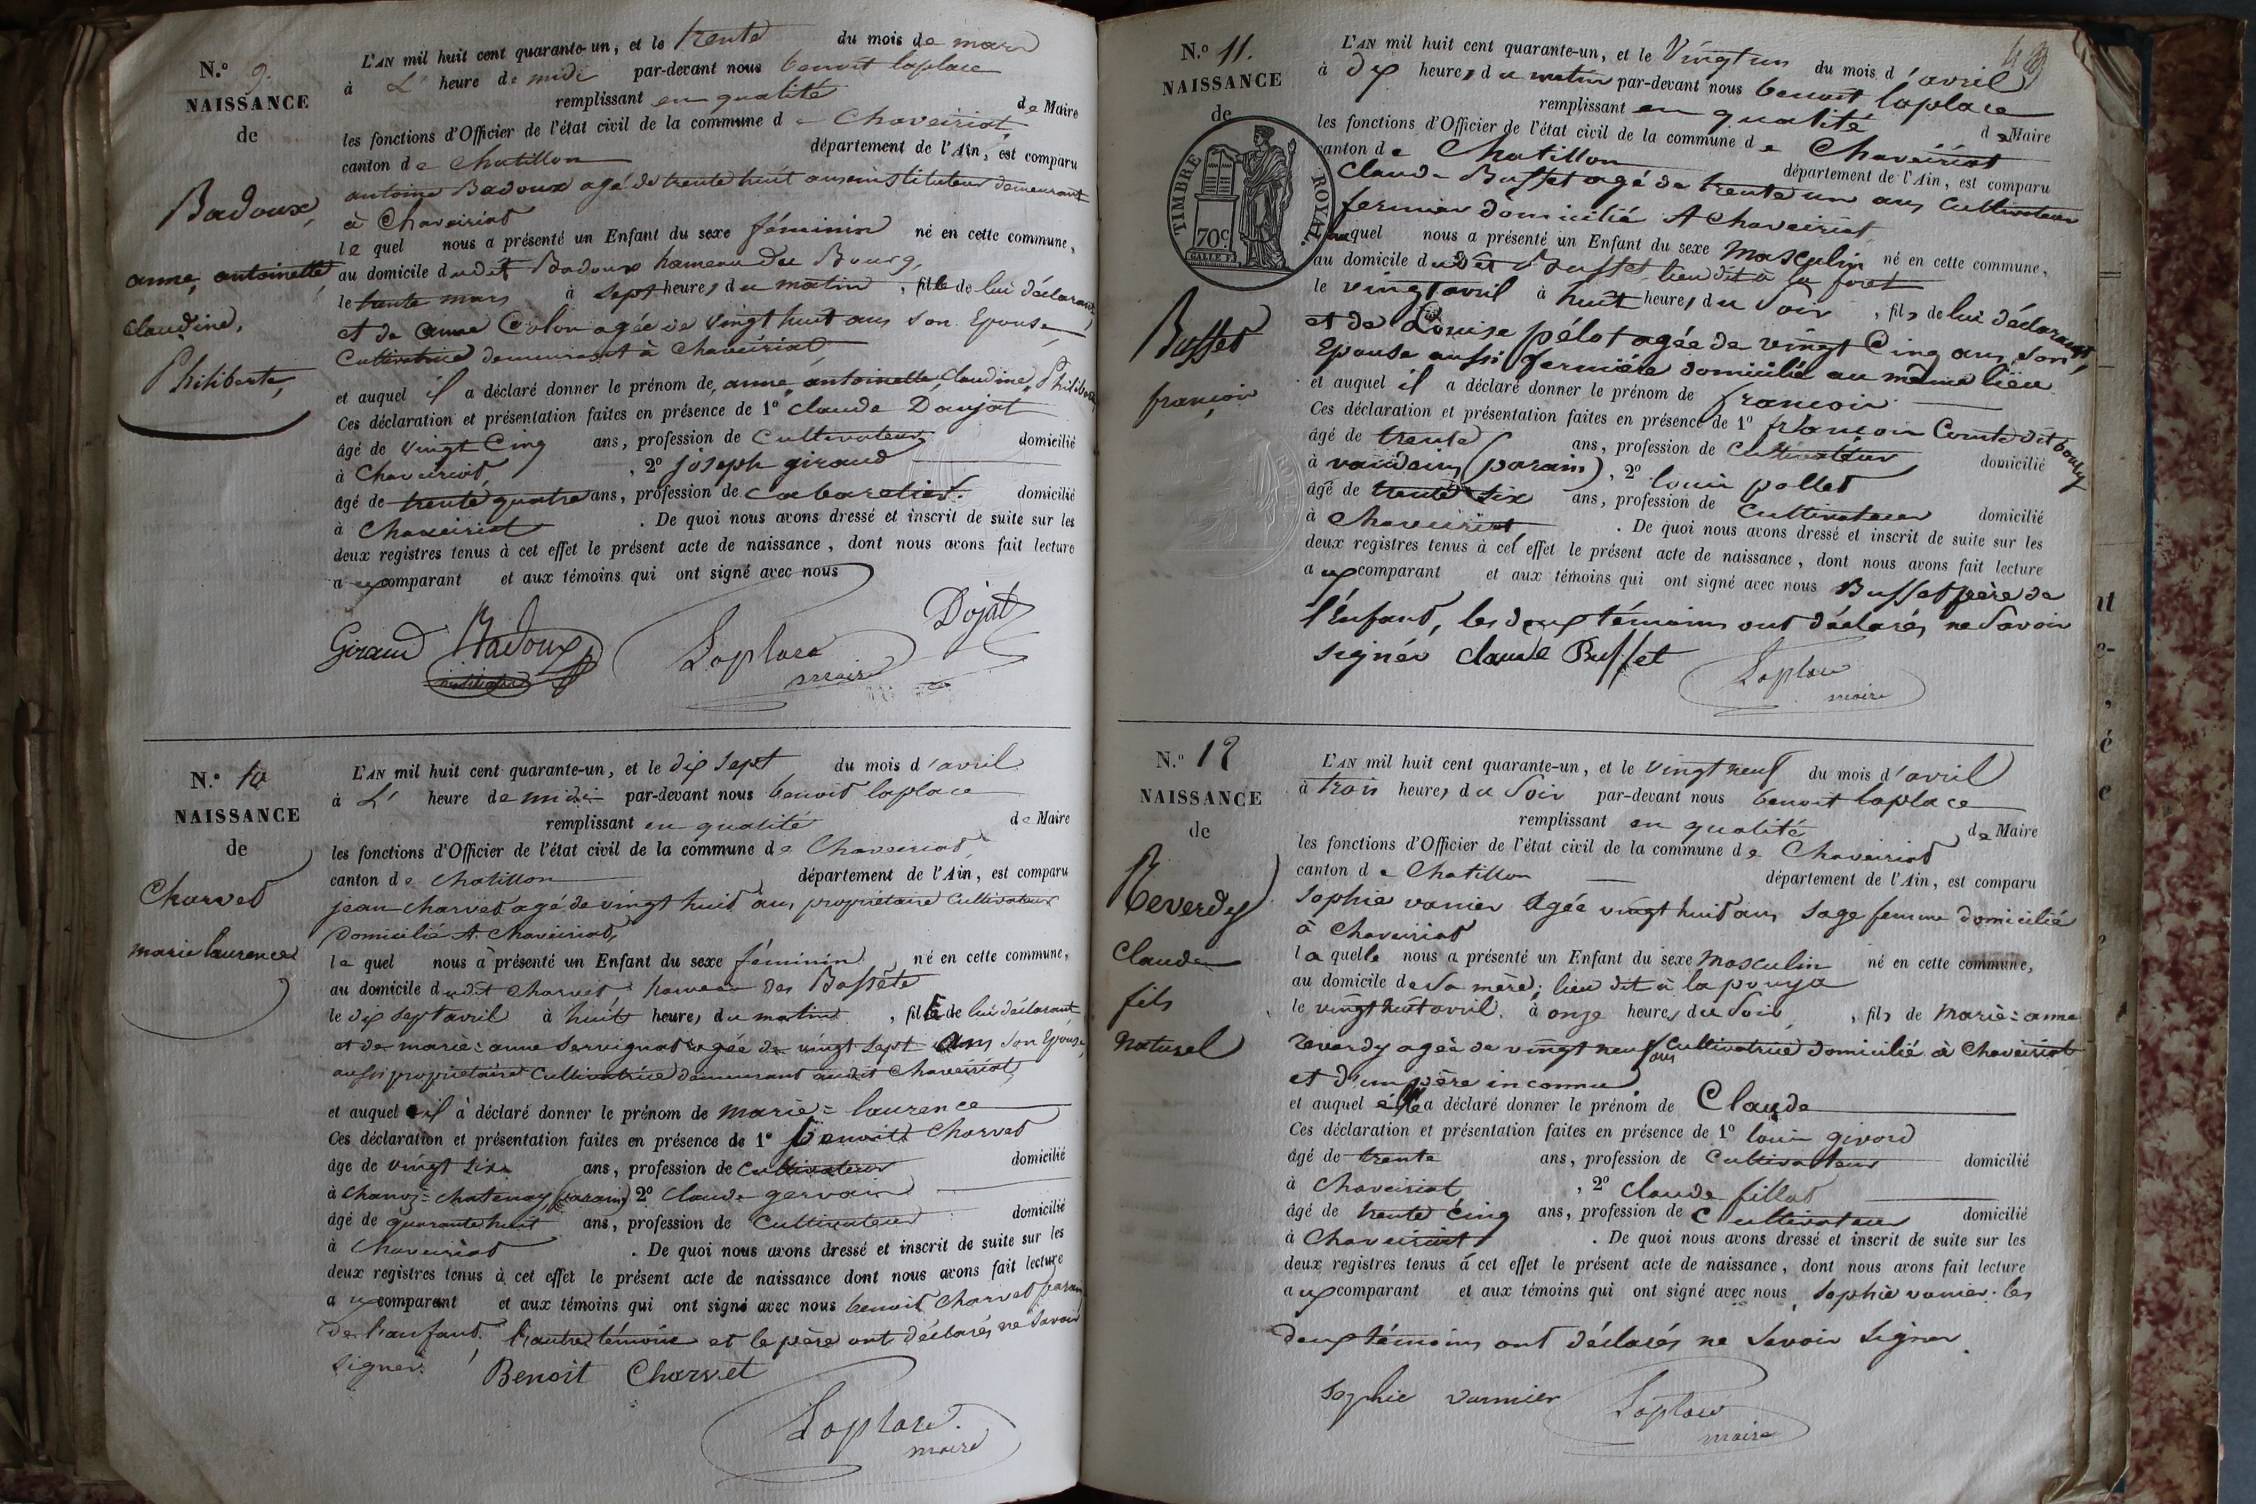 N.° 9.
NAISSANCE
de
Badoux,
anne, antoinette,
Claudine,
Philiberte,
L'AN mil huit cent quarante-un, et le trente du mois de mars
à L' heure de midi par-devant nous benoit laplace
remplissant en qualité de Maire
les fonctions d'Officier de l'état civil de la commune de Chaveiriat
canton de Chatillon département de l'Ain, est comparu
antoine Badoux agé de trente huit ans instituteur demeurant
à Chaveiriat
le quel nous a présenté un Enfant du sexe féminin né en cette commune,
au domicile dudit Badoux hameau du Bourg,
le trente mars à sept heures du matin, fille de lui déclarant,
et de anne Colon agée de vingt huit ans son Epouse,
Cultivatrice demeurant à Chaveiriat,
et auquel il a déclaré donner le prénom de anne, antoinette, Claudine, Philiberte
Ces déclaration et présentation faites en présence de 1° Claude Daujat
âgé de vingt Cinq ans, profession de Cultivateur, domicilié
à Chaveiriat, , 2° joseph giraud
âgé de trente quatre ans, profession de Cabaretier. domicilié
à Chaveiriat . De quoi nous avons dressé et inscrit de suite sur les
deux registres tenus à cet effet le présent acte de naissance, dont nous avons fait lecture
aux comparant et aux témoins qui ont signé avec nous
Giraud Badoux Laplace Dojat
maire
N.° 10
NAISSANCE
de
Charvet
marie laurence
L'AN mil huit cent quarante-un, et le dix sept du mois d'avril
à L' heure de midi par-devant nous benoit laplace
remplissant en qualité de Maire
les fonctions d'Officier de l'état civil de la commune de Chaveiriat,
canton de Chatillon département de l'Ain, est comparu
jean Charvet agé de vingt huit ans, propriétaire Cultivateur
Domicilié A Chaveiriat,
le quel nous a présenté un Enfant du sexe féminin, né en cette commune,
au domicile dudit Charvet hameau des Bassète
le dix sept avril à huit heures du matin, fille de lui déclarant
et de marie=anne Servignat agée de vingt sept ans son Epouse,
aussi propriétaire Cultivatrice demeurant audit Chaveiriat,
et auquel il a déclaré donner le prénom de marie=laurence
Ces déclaration et présentation faites en présence de 1° benoit Charvet
âge de vingt six ans, profession de Cultivateur domicilié
à Chanoz=Chatenay, (parain) 2° Claude gervais
âgé de quarante huit ans, profession de Cultivateur domicilié
à Chaveiriat . De quoi nous avons dressé et inscrit de suite sur les
deux registres tenus à cet effet le présent acte de naissance dont nous avons fait lecture
aux comparant et aux témoins qui ont signé avec nous benoit Charvet parain
de l'anfant, l'autre témoin et le père ont déclarés ne Savoir
signer. Benoit Charvet
Laplace
maire
N.° 11.
NAISSANCE
de
TIMBRE ROYAL.
70c
Buffet
françois
L'AN mil huit cent quarante-un, et le Vingt un du mois d'avril
à dix heures du matin par-devant nous benoit laplace
remplissant en qualité de Maire
les fonctions d'Officier de l'état civil de la commune de Chaveiriat
canton de Chatillon département de l'Ain, est comparu
Claude Buffet agé de trente un ans Cultivateur
fermier domicilié A Chaveiriat
quel nous a présenté un Enfant du sexe Masculin né en cette commune,
au domicile dudit Buffet lieu dit à la foret
le vingt avril à huit heures du Soir, fils de lui déclarant,
et de Louise pélot agée de vingt Cinq ans, Son
Epouse aussi fermière domicilié au même lieu
et auquel il a déclaré donner le prénom de françois
Ces déclaration et présentation faites en présence de 1° françois Comte dit
âgé de trente ans, profession de Cultivateur domicilié
à vandeins (parain), 2° louis pollet
âgé de trente six ans, profession de Cultivateur domicilié
à Chaveiriat, . De quoi nous avons dressé et inscrit de suite sur les
deux registres tenus à cet effet le présent acte de naissance, dont nous avons fait lecture
aux comparant et aux témoins qui ont signé avec nous Buffet père de
l'Enfant, les deux témoins ont déclarés ne Savoir
signer Claude Buffet
Laplace
maire
N.° 12
NAISSANCE
de
Reverdy
Claude
fils
naturel
L'AN mil huit cent quarante-un, et le Vingt neuf du mois d'avril
à trois heures du Soir par-devant nous benoit laplace
remplissant en qualité de Maire
les fonctions d'Officier de l'état civil de la commune de Chaveiriat
canton de Chatillon département de l'Ain, est comparu
Sophie vanier Agée vingt huit ans Sage femme domicilié
à Chaveiriat
la quelle nous a présenté un Enfant du sexe Masculin né en cette commune,
au domicile de Sa mère, lieu dit à la pouya
le vingt huit avril à onze heures du Soir, fils de Marie=anne
reverdy agée de vingt neuf ans Cultivatrice domicilié à Chaveiriat
et d'un père inconnu
et auquel elle a déclaré donner le prénom de Claude
Ces déclaration et présentation faites en présence de 1° louis givord
âgé de trente ans, profession de Cultivateur domicilié
à Chaveiriat , 2° Claude fillod
âgé de trente Cinq ans, profession de Cultivateur domicilié
à Chaveiriat . De quoi nous avons dressé et inscrit de suite sur les
deux registres tenus à cet effet le présent acte de naissance, dont nous avons fait lecture
aux comparant et aux témoins qui ont signé avec nous, Sophie vanier. les
deux témoins ont déclarés ne Savoir Signer.
Sophie varnier Laplace
maire